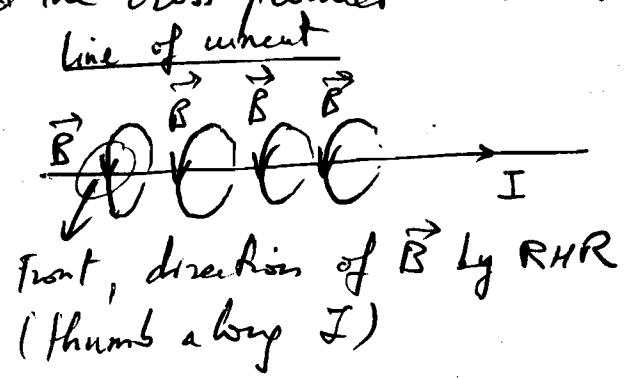 the cross product
Line of current
B⃗ B⃗ B⃗ B⃗
I
Front, direction of B⃗ by RHR
(thumb along I)